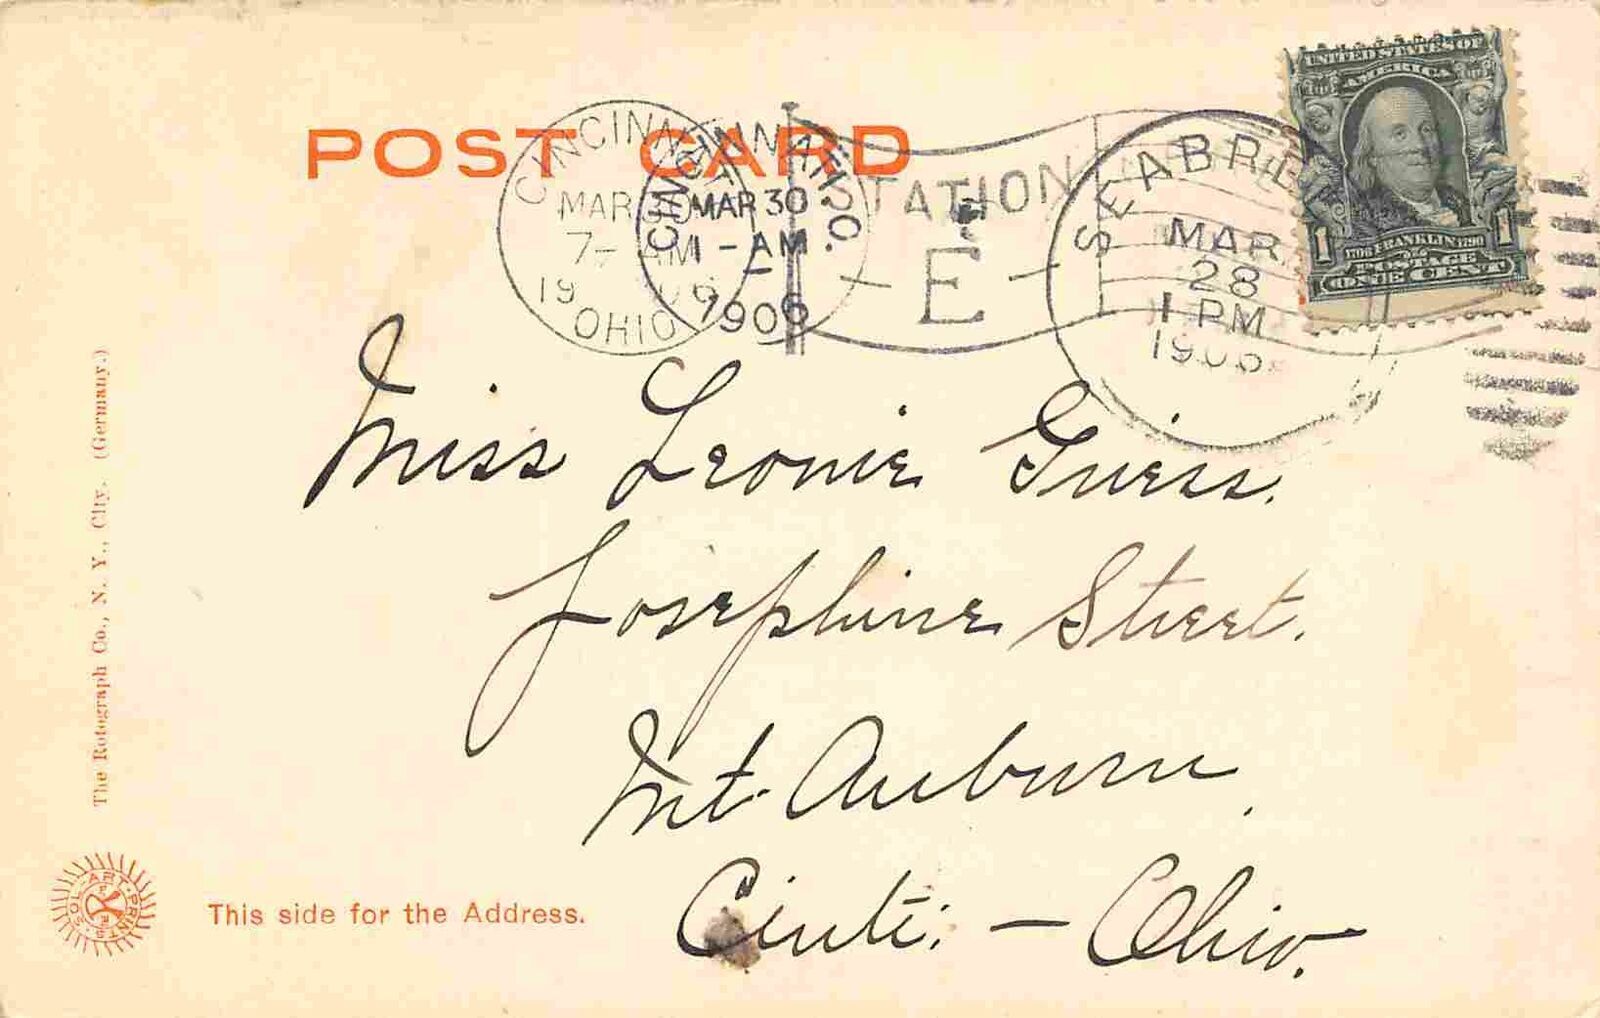 POST CARD
CINCINNATI
MAR 30
7- AM
19 06
OHIO
CINCINNATI, O.
MAR 30
1 - AM
1906
STATION
- E -
SEABRE
MAR
28
1 PM
1906
UNITED STATES OF
AMERICA
1 1706 FRANKLIN 1790 1
POSTAGE
ONE CENT
Miss Leonie Guess.
Josephine Street.
Mt. Auburn,
Cinti. - Ohio.
The Rotograph Co., N. Y., City. (Germany.)
SOL-ART-PRINTS
This side for the Address.